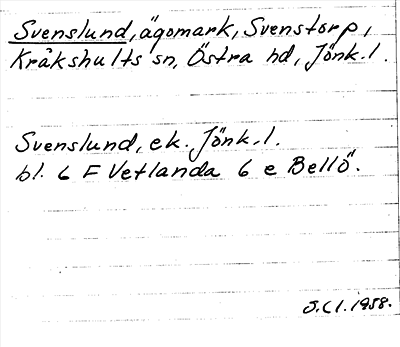 Svenslund, ägomark, Svenstorp,
Kråkshults sn, Östra hd, Jönk. l.
Svenslund, ek. Jönk. l.
bl. 6 F Vetlanda 6 e Bellö.
1958.